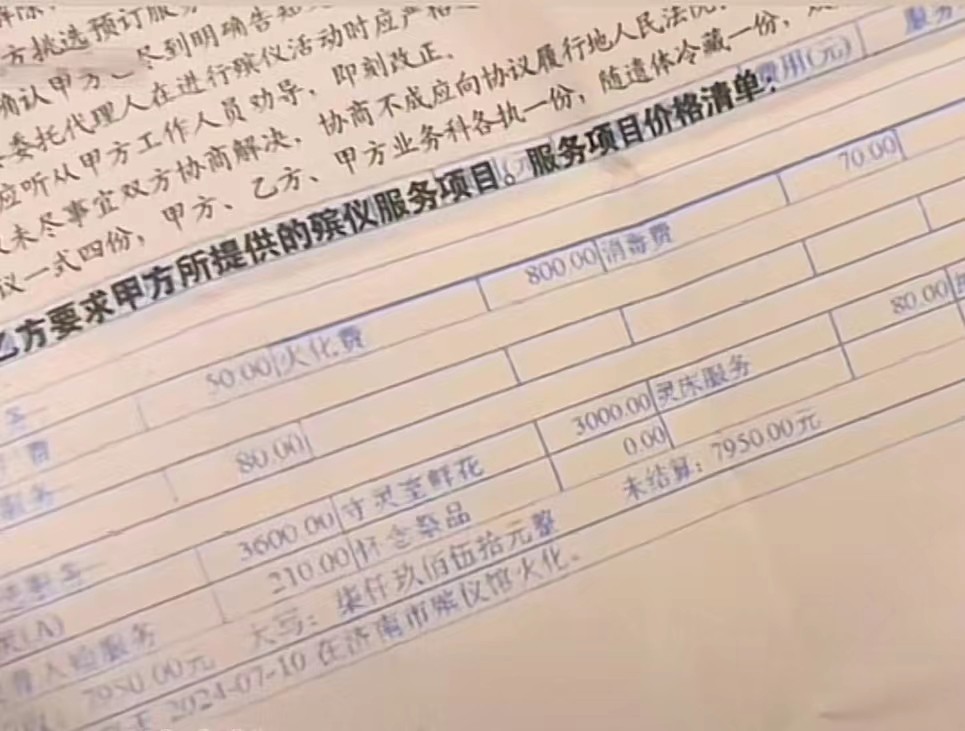 方挑选预订服务
确认甲方 尽到明确告知
委托代理人在进行殡仪活动时应严格
应听从甲方工作人员劝导，即刻改正。
未尽事宜双方协商解决，协商不成应向协议履行地人民法院
议一式四份，甲方、乙方、甲方业务科各执一份，随遗体冷藏一份，
乙方要求甲方所提供的殡仪服务项目。服务项目价格清单：
费用(元) 服务
50.00 火化费 800.00 消毒费 70.00
费 80.00
服务
3600.00 守灵室鲜花 3000.00 灵床服务 80.00
(A) 210.00 怀念祭品 0.00
入殓服务 大写：柒仟玖佰伍拾元整 未结算：7950.00元
7950.00元
2024-07-10 在济南市殡仪馆火化。